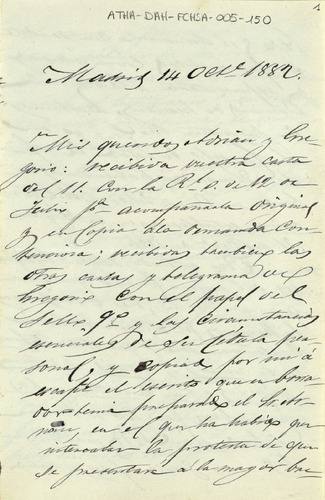 ATHA-DAH-FCHSA-005-150
1
Madrid 14 Octe. 1882.
Mis queridos Adrián y Gre
gorio: recibida vuestra carta
del 11. con la Rl. O. de 12 de
Julio qe. acompañada original
y en copia a la demanda con
tenciosa; recibidas tambien las
otras cartas y telegrama de
Gregorio con el papel del
sello 9º y las circunstancias
esenciales de su cédula per
sonal, y copiado por mi á
escape el escrito que en borra
dor tenia preparado el Sr.
en el que ha habido que
intercalar la protesta de que
se presentara a la mayor bre